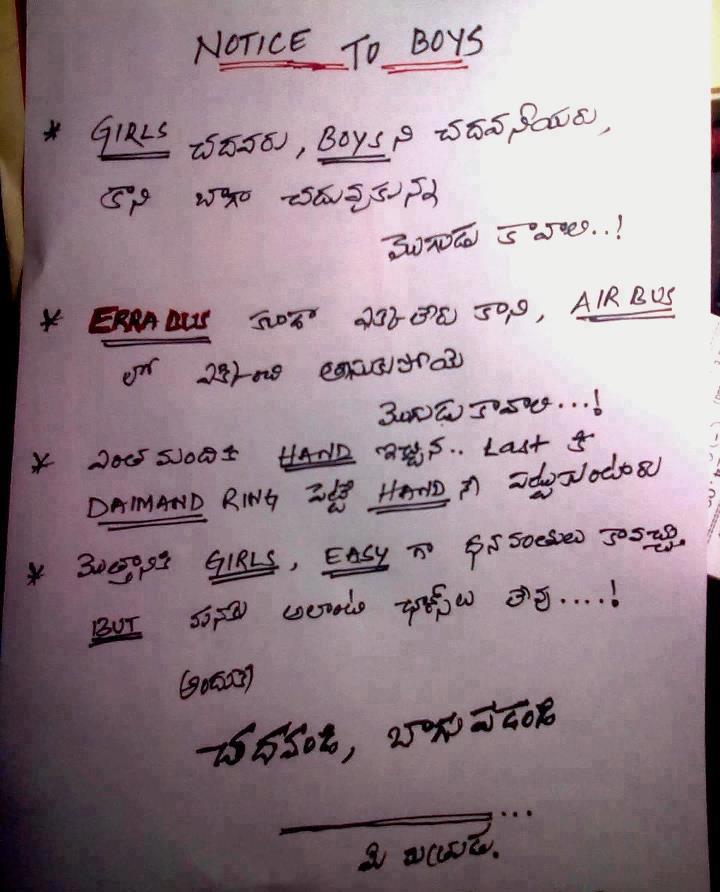 NOTICE TO BOYS
* GIRLS చదవరు, BOYS ని చదవనీయరు,
కాని బాగా చదువుకున్న
మొగుడు కావాలి..!
* ERRA BUS కూడా ఎక్కలేరు కాని, AIR BUS
లో ఎక్కించి తీసుకుపోయే
మొగుడు కావాలి...!
* ఎంత మందికి HAND ఇచ్చిన.. Last కి
DAIMAND RING పెట్టే HAND నే పట్టుకుంటారు
* మొత్తానికి GIRLS, EASY గా ధనవంతులు కావచ్చు
BUT మనకు అలాంటి ఛాన్స్‌లు లేవు....!
అందుకే
చదవండి, బాగుపడండి
...
మీ